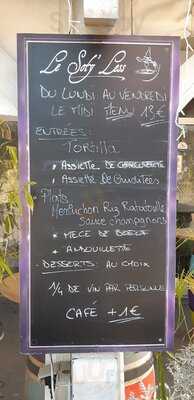 Le Soty' Less
DU LUNDI AU VENDREDI
LE MIDI MENU 13€
ENTRÉES:
TORTILLA
* ASSIETTE DE CHARCUTERIE
* ASSIETTE DE CRUDITÉES
Plats
Manchon Riz Ratatouille
Sauce champignons
* PIECE DE BOEUF
* ANDOUILLETTE
- DESSERTS: AU CHOIX
1/4 DE VIN PAR PERSONNE
CAFÉ +1€